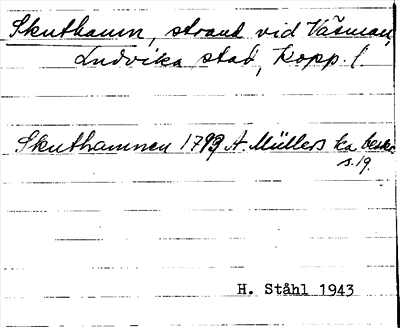 Skuthamn, strand vid Väsman,
Ludvika stad, Kopp. l.
Skuthamnen 1799 A. Müllers ka beskr.
s. 19.
H. Ståhl 1943